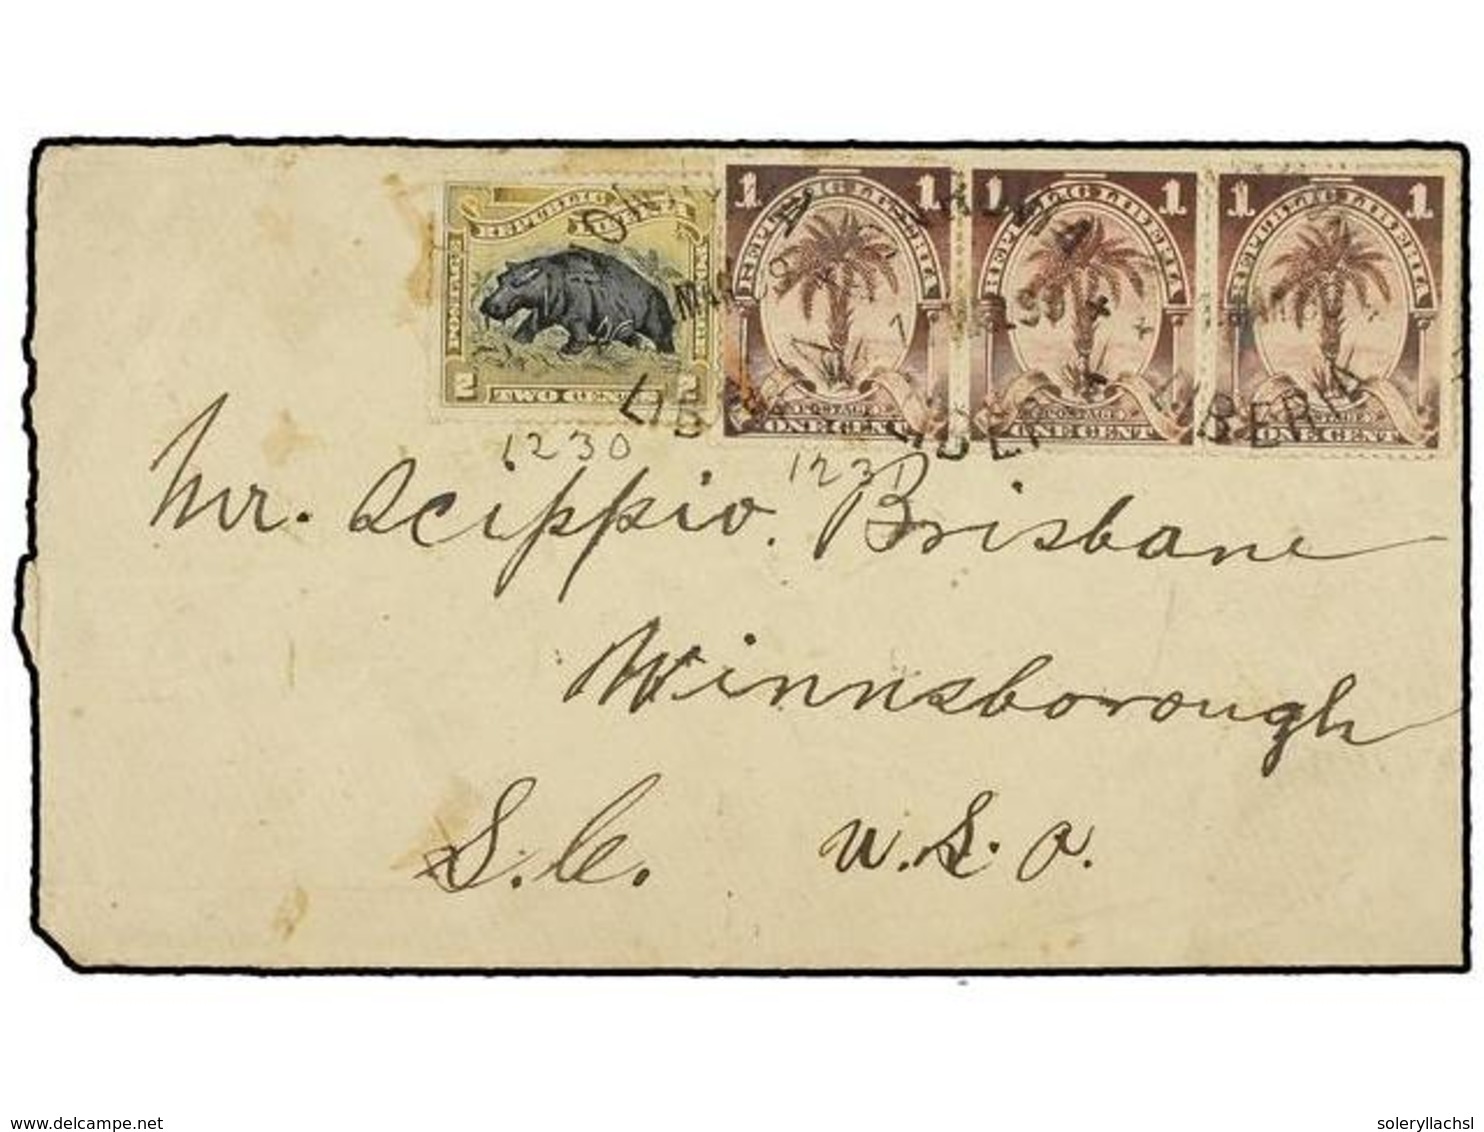 REPUBLIC LIBERIA
POSTAGE
2 TWO CENTS 2
1 REPUBLIC LIBERIA 1
POSTAGE
ONE CENT
1 REPUBLIC LIBERIA 1
POSTAGE
ONE CENT
1 REPUBLIC LIBERIA 1
POSTAGE
ONE CENT
LIBERIA
1230
1231
Mr. Scippio. Brisbane
Winnsborough
S.C. U.S.A.
www.delcampe.net
soleryllachsl